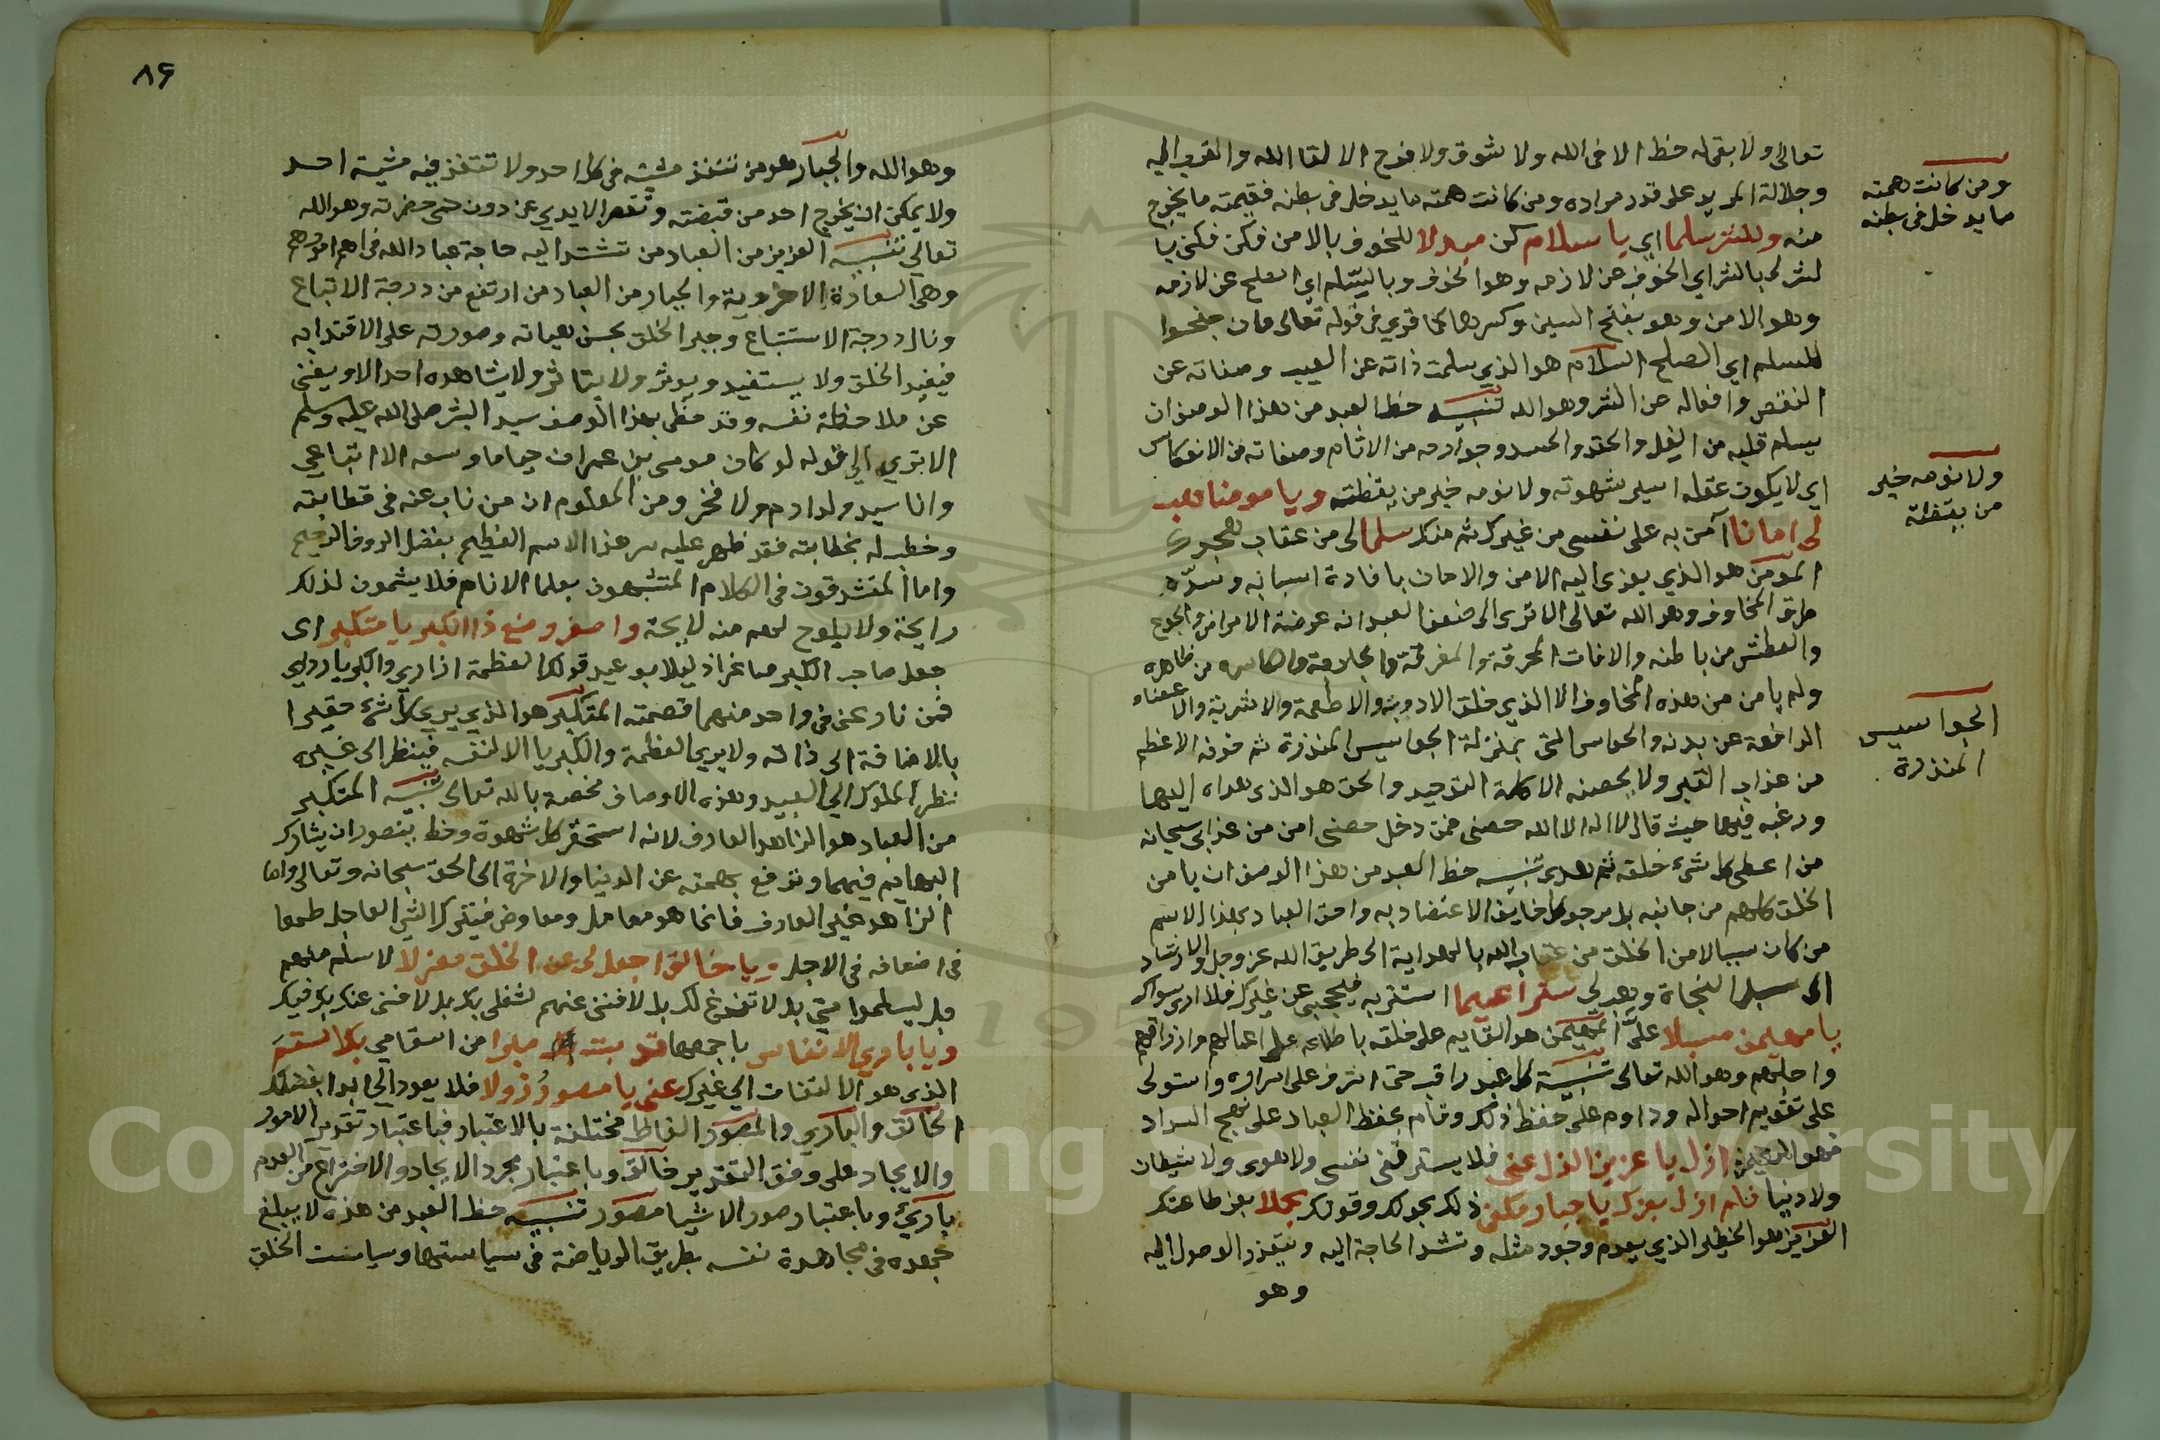 تعالى ولا يبقى له حظ الا فى الله ولا شوق ولا فرح الا لقا الله والقرب اليه
وجلالة المريد على قدر مراده ومن كانت همته ما يدخل فى بطنه فقيمته ما يخرج
منه وللشر سلما اي يا سلام كن مبدلا للخوف بالامن فكن فكنى يا
لشر اي بالشر اي الخوف عن لازمه وهو الخوف وبالسلم اي الصلح عن لازمه
وهو الامن وهو بفتح السين وكسرها كما قرئ فى قوله تعالى وان جنحوا
للسلم اي الصلح السلام هو الذي سلمت ذاته عن العيب وصفاته عن
النقص وافعاله عن الشر وهو الله تنبيه حظ العبد من هذا الوصف ان
يسلم قلبه من الغل والحقد والحسد وجوارحه من الاثام وصفاته من الانعكاس
اي لا يكون عقله اسير شهوته ولا نومه خير من يقظته ويا مومنا هب
لى امانا آمن به على نفسى من غيرك ثم منك سلما لى من عقاب
المومن هو الذي يعزى اليه الامن والامان بافادة اسبابه وسدّه
طرق المخاوف وهو الله تعالى الا ترى الى ضعف العبد انه عرضة الامراض والجوع
والعطش من باطنه والافات المحرقة والمغرقة والجارحة والكاسره من ظاهره
ولم يامن من هذه المخاوف الا الذي خلق الادوية والاطعمة والاشربة والاعضاء
الدافعة عن بدنه والحواس التى بمنزلة الجواسيس المنذرة ثم خوفه الاعظم
من عذاب القبر ولا يحصنه الا كلمة التوحيد والحق هو الذى هداه اليها
ورغبه فيها حيث قال لا اله الا الله حصنى فمن دخل حصنى امن من عذابى سبحانه
من اعطى كل شئ خلقه ثم هدى تنبيه حظ العبد من هذا الوصف ان يامن
الخلق كلهم من جانبه بل يرجو كل خايف الاعتضاد به واحق العباد بهذا الاسم
من كان سببا لامن الخلق من عقاب الله بالهداية الى طريق الله عز وجل والارشاد
الى سبل النجاة وهب لى سترا عميما استتر به فيحجبى عن غيرك فلا ارى سواك
يا مهيمن مسبلا علىّ المهيمن هو القايم على خلقه باطلاعه على اعمالهم وارزاقهم
واجلهم وهو الله تعالى تنبيه كل عبد راقب حتى اشرف على اسراره واستولى
على تقويم احواله وداوم على حفظ ذلك وقام بحفظ العباد على نهج السداد
فهو المهيمن ازل يا عزيز الذل عنى فلا يسترقنى نفسى ولا هوى ولا شيطان
ولا دنيا فلم ازل بعزك يا جبار مكفى ذلك بحولك وقوتك مجلا بعز طاعتك
العزيز هو الخطير الذي يعدم وجود مثله وتشد الحاجة اليه ويتعذر الوصول اليه
وهو
ومن كانت همته
ما يدخل فى بطنه
ولا نومه خير
من يقظته
الجواسيس
المنذرة
٨٦
وهو الله والجبار هو من تنفذ مشيته فى كل احد ولا تنفذ فيه مشية احد
ولا يمكن ان يخرج احد من قبضته وتقصر الايدي عن دون حمى حضرته وهو الله
تعالى تنبيه العزيز من العباد من تشتد اليه حاجة عباد الله فى اهم امورهم
وهى السعادة الاخروية والجبار من العباد من ارتفع من درجة الاتباع
ونال درجة الاستتباع وجبر الخلق بحسن هيئاته وصورته على الاقتدا به
فيفيد الخلق ولا يستفيد ويوثر ولا يتاثر ولا يشاهده احد الا ويفنى
عن ملاحظة نفسه وقد حظى بهذا الوصف سيد البشر صلى الله عليه وسلم
الا ترى الى قوله لو كان موسى بن عمران حيا ما وسعه الا اتباعي
وانا سيد ولد ادم ولا فخر ومن المعلوم ان من ناب عنه فى قطابته
وخطب له بخطابته فقد ظهر عليه سر هذا الاسم العظيم بفضل الروف الرحيم
واما المتشدقون فى الكلام المتشبهون بعلما الانام فلا يشمون لذلك
رايحة ولا يلوح لهم منه لايحة واصغر وضع ذا الكبر يا متكبر اى
جعل صاحب الكبر صاغرا ذليلا بوعيد قولك العظمة ازاري والكبريا ردايي
فمن نازعنى فى واحد منهما قصمته المتكبر هو الذي يرى كل شئ حقيرا
بالاضافة الى ذاته ولا يري العظمة والكبريا الا لنفسه فينظر الى غيره
نظر الملوك الى العبيد وهذه الاوصاف مختصة بالله تعالى تنبيه المتكبر
من العباد هو الزاهد العارف لانه استحقر كل شهوة وحظ يتصور ان يشارك
البهايم فيهما وترفع بهمته عن الدنيا والاخرة الى الحق سبحانه وتعالى واما
الزاهد غير العارف فانما هو معامل ومعاوض فيترك الشئ العاجل طمعا
فى اضعافه فى الاجل ويا خالق اجعل لى عن الخلق معزلا لاسلم منهم
بل ليسلموا منى بل لاتفرغ لك بل لافنى عنهم لشغلى بك بل لافنى عنك بك فيك
ويا باري الانفاس باجمعها قد بت مبرا من اسقامي بلا سقم
الذى هو الالتفات الى غيرك عنى يا مصور زولا فلا يعود الى ابدا بفضلك
الخالق والباري والمصور الفاظ مختلفة بالاعتبار فباعتبار تقدير الامور
والايجاد على وفق التقدير خالق وباعتبار مجرد الايجاد والاختراع من العدم
باريئ وباعتبار صور الاشيا مصور تنبيه حظ العبد من هذه لا يبلغ
جهده فى مجاهدة نفسه بطريق الرياضة فى سياستها وسياست الخلق